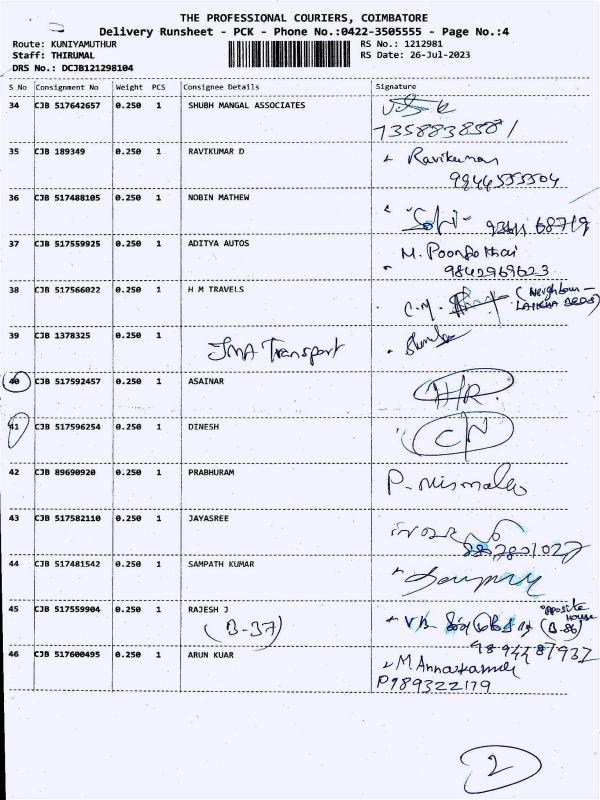 THE PROFESSIONAL COURIERS, COIMBATORE
Delivery Runsheet - PCK - Phone No.:0422-3505555 - Page No.:4
Route: KUNIYAMUTHUR
RS No.: 1212981
Staff: THIRUMAL
RS Date: 26-Jul-2023
DRS No.: DCJB121298104
S No Consignment No Weight PCS Consignee Details Signature
34 CJB 517642657 0.250 1 SHUBH MANGAL ASSOCIATES
7358838581
35 CJB 189349 0.250 1 RAVIKUMAR D Ravikumar
9944555504
36 CJB 517488105 0.250 1 NOBIN MATHEW
37 CJB 517559925 0.250 1 ADITYA AUTOS M. Poonkothai
9842969623
38 CJB 517566022 0.250 1 H M TRAVELS C.M. (Neighbour -
39 CJB 1378325 0.250 1
JMA Transport
40 CJB 517592457 0.250 1 ASAINAR H/R.
41 CJB 517596254 0.250 1 DINESH CN
42 CJB 89690920 0.250 1 PRABHURAM P.
43 CJB 517582110 0.250 1 JAYASREE
44 CJB 517481542 0.250 1 SAMPATH KUMAR
45 CJB 517559904 0.250 1 RAJESH J opposite House
(B-37) (B-86)
9894487937
46 CJB 517600495 0.250 1 ARUN KUAR
P989322179
2